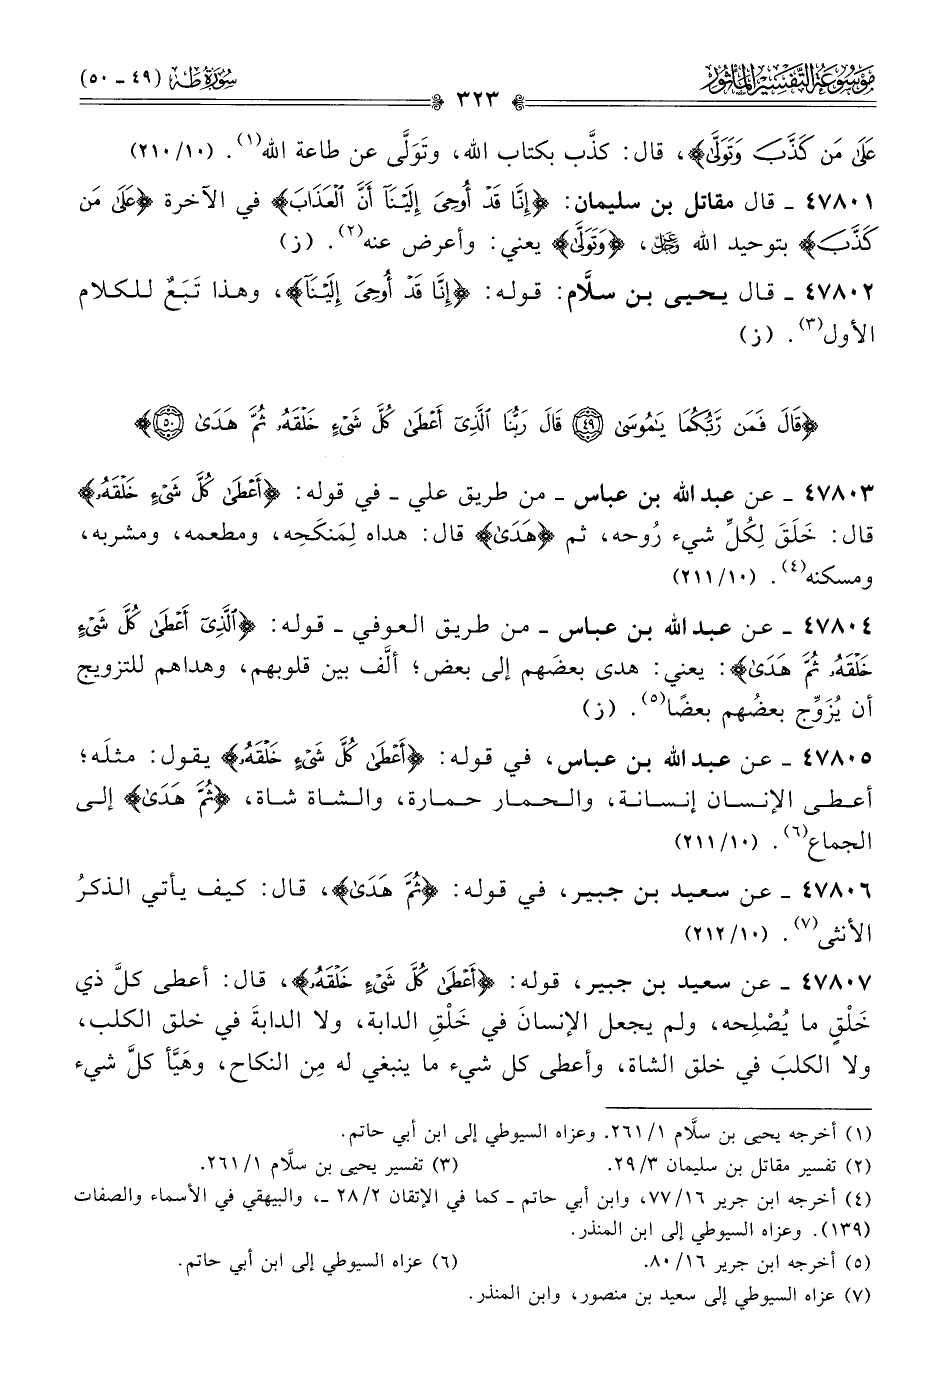 مَوْسُوعَة التَّفْسِير المَأْثُور
٣٢٣
سُورَة طه (٤٩ - ٥٠)
عَلَىٰ مَن كَذَّبَ وَتَوَلَّىٰ﴾، قال: كذَّب بكتاب الله، وتَوَلَّى عن طاعة الله(١). (٢١٠/١٠)
٤٧٨٠١ - قال مقاتل بن سليمان: ﴿إِنَّا قَدْ أُوحِىَ إِلَيْنَآ أَنَّ ٱلْعَذَابَ﴾ في الآخرة ﴿عَلَىٰ مَن
كَذَّبَ﴾ بتوحيد الله عز وجل، ﴿وَتَوَلَّىٰ﴾ يعني: وأعرض عنه(٢). (ز)
٤٧٨٠٢ - قال يحيى بن سلَّام: قوله: ﴿إِنَّا قَدْ أُوحِىَ إِلَيْنَآ﴾، وهذا تَبَعٌ للكلام
الأول(٣). (ز)
﴿قَالَ فَمَن رَّبُّكُمَا يَٰمُوسَىٰ ٤٩ قَالَ رَبُّنَا ٱلَّذِىٓ أَعْطَىٰ كُلَّ شَىْءٍ خَلْقَهُۥ ثُمَّ هَدَىٰ ٥٠﴾
٤٧٨٠٣ - عن عبد الله بن عباس - من طريق علي - في قوله: ﴿أَعْطَىٰ كُلَّ شَىْءٍ خَلْقَهُۥ﴾
قال: خَلَقَ لِكُلِّ شيء رُوحه، ثم ﴿هَدَىٰ﴾ قال: هداه لِمَنكَحِه، ومطعمه، ومشربه،
ومسكنه(٤). (٢١١/١٠)
٤٧٨٠٤ - عن عبد الله بن عباس - من طريق العوفي - قوله: ﴿ٱلَّذِىٓ أَعْطَىٰ كُلَّ شَىْءٍ
خَلْقَهُۥ ثُمَّ هَدَىٰ﴾: يعني: هدى بعضَهم إلى بعض؛ ألَّف بين قلوبهم، وهداهم للتزويج
أن يُزَوِّج بعضُهم بعضًا(٥). (ز)
٤٧٨٠٥ - عن عبد الله بن عباس، في قوله: ﴿أَعْطَىٰ كُلَّ شَىْءٍ خَلْقَهُۥ﴾ يقول: مثلَه؛
أعطى الإنسان إنسانة، والحمار حمارة، والشاة شاة، ﴿ثُمَّ هَدَىٰ﴾ إلى
الجماع(٦). (٢١١/١٠)
٤٧٨٠٦ - عن سعيد بن جبير، في قوله: ﴿ثُمَّ هَدَىٰ﴾، قال: كيف يأتي الذكرُ
الأنثى(٧). (٢١٢/١٠)
٤٧٨٠٧ - عن سعيد بن جبير، قوله: ﴿أَعْطَىٰ كُلَّ شَىْءٍ خَلْقَهُۥ﴾، قال: أعطى كلَّ ذي
خَلْقٍ ما يُصْلِحه، ولم يجعل الإنسانَ في خَلْقِ الدابة، ولا الدابةَ في خلق الكلب،
ولا الكلبَ في خلق الشاة، وأعطى كل شيء ما ينبغي له مِن النكاح، وهَيَّأ كلَّ شيء
(١) أخرجه يحيى بن سلَّام ٢٦١/١. وعزاه السيوطي إلى ابن أبي حاتم.
(٢) تفسير مقاتل بن سليمان ٢٩/٣. (٣) تفسير يحيى بن سلَّام ٢٦١/١.
(٤) أخرجه ابن جرير ٧٧/١٦، وابن أبي حاتم - كما في الإتقان ٢٨/٢ -، والبيهقي في الأسماء والصفات
(١٣٩). وعزاه السيوطي إلى ابن المنذر.
(٥) أخرجه ابن جرير ٨٠/١٦. (٦) عزاه السيوطي إلى ابن أبي حاتم.
(٧) عزاه السيوطي إلى سعيد بن منصور، وابن المنذر.